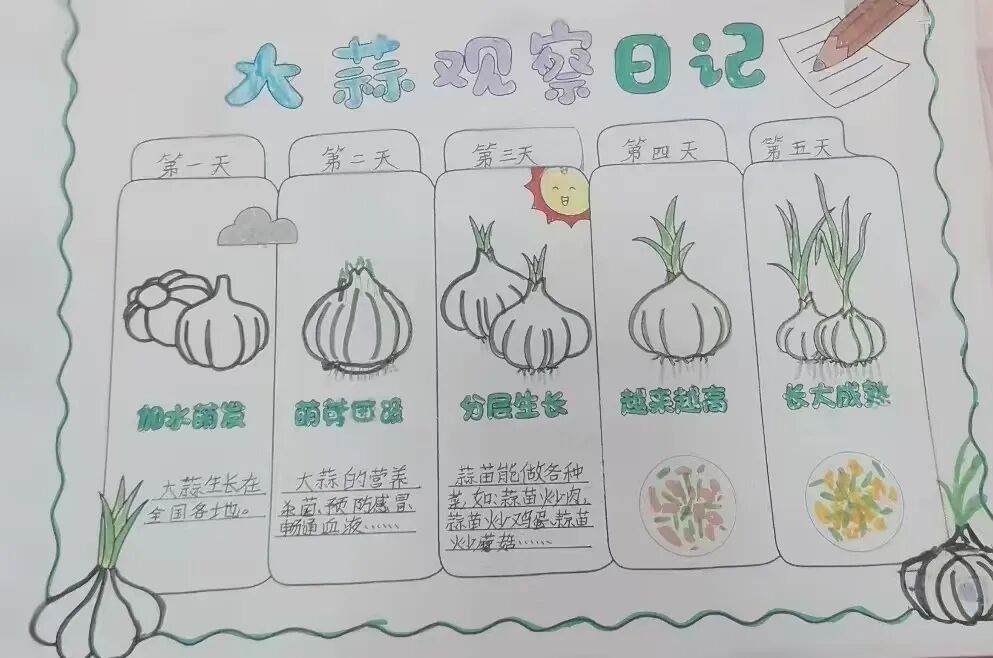 大蒜观察日记
第一天
加水萌发
大蒜生长在
全国各地。
第二天
萌芽
大蒜的营养
杀菌、预防感冒、
畅通血液……
第三天
分层生长
蒜苗能做各种
菜,如:蒜苗炒肉、
蒜苗炒鸡蛋、蒜苗
炒蘑菇……
第四天
越来越高
第五天
长大成熟